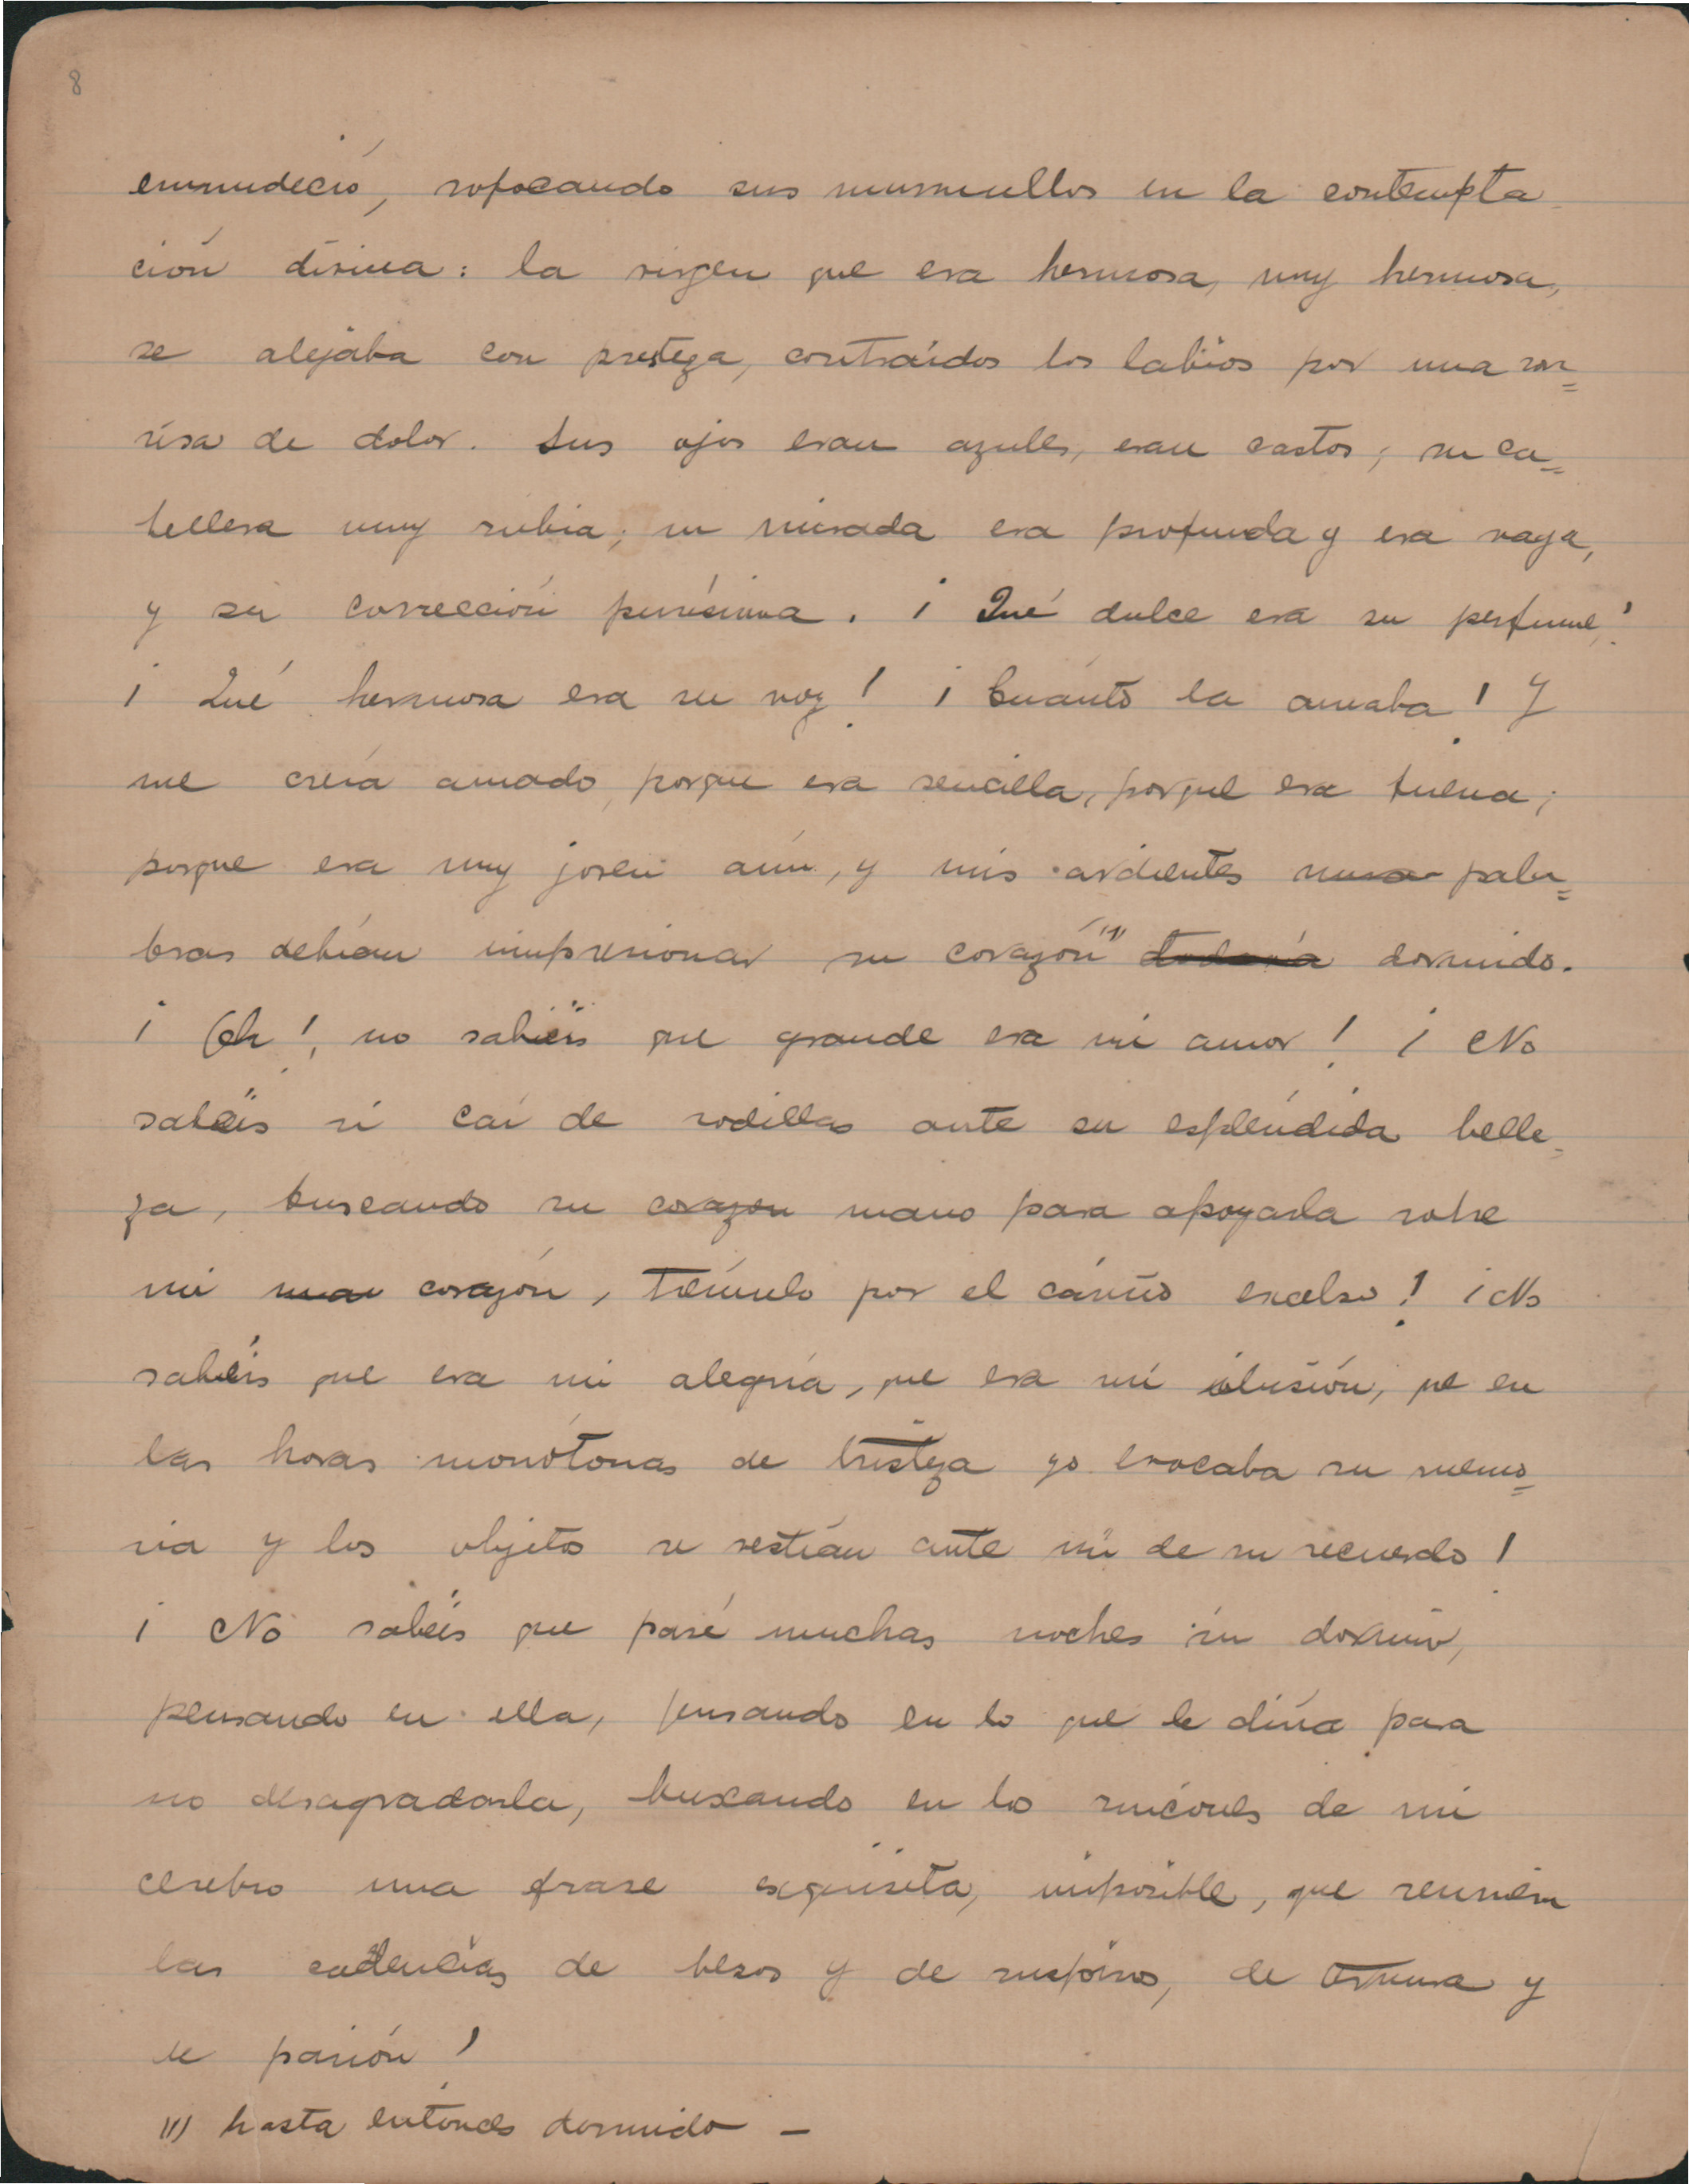 8
enmudeció, sofocando sus murmullos en la contempla-
ción divina: la virgen que era hermosa, muy hermosa,
se alejaba con presteza, contraídos los labios por una son=
risa de dolor. Sus ojos eran azules, eran castos; su ca=
bellera muy rubia; su mirada era profunda y era vaga,
y su corrección purísima. ¡Qué dulce era su perfume!
¡Qué hermosa era su voz! ¡Cuánto la amaba! Y
me creía amado, porque era sencilla, porque era buena;
porque era muy joven aún, y mis ardientes pala=
bras debían impresionar su corazón (1) todavía dormido.
¡Oh!, no sabéis que grande era mi amor! ¡No
sabéis si caí de rodillas ante su espléndida belle-
za, buscando su corazon mano para apoyarla sobre
mi man corazón, trémulo por el cariño excelso! ¡No
sabéis que era mi alegría, que era mi ilusión, que en
las horas monótonas de tristeza yo evocaba su memo=
ria y los objetos se vestían ante mí de su recuerdo!
¡No sabéis que pasé muchas noches sin dormir,
pensando en ella, pensando en lo que le diría para
no desagradarla, buscando en los rincones de mi
cerebro una frase esquisita, imposible, que reuniera
las cadencias de besos y de suspiros, de ternura y
de pasión!
(1) hasta entonces dormido —